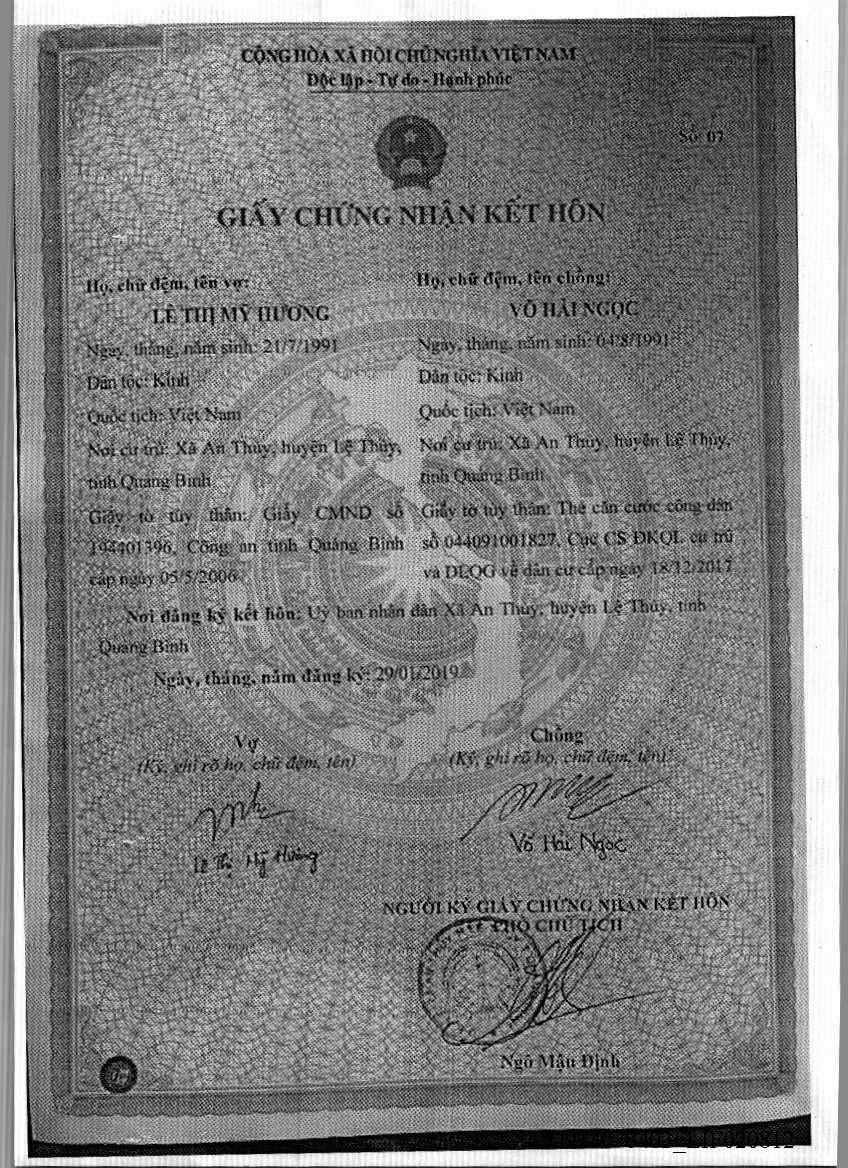 CỘNG HÒA XÃ HỘI CHỦ NGHĨA VIỆT NAM
Độc lập - Tự do - Hạnh phúc
Số: 07
GIẤY CHỨNG NHẬN KẾT HÔN
Họ, chữ đệm, tên vợ:
LÊ THỊ MỸ HƯƠNG
Ngày, tháng, năm sinh: 21/7/1991
Dân tộc: Kinh
Quốc tịch: Việt Nam
Nơi cư trú: Xã An Thủy, huyện Lệ Thủy,
tỉnh Quảng Bình
Giấy tờ tùy thân: Giấy CMND số
194401396, Công an tỉnh Quảng Bình
cấp ngày 05/5/2006
Họ, chữ đệm, tên chồng:
VÕ HẢI NGỌC
Ngày, tháng, năm sinh: 04/8/1991
Dân tộc: Kinh
Quốc tịch: Việt Nam
Nơi cư trú: Xã An Thủy, huyện Lệ Thủy,
tỉnh Quảng Bình
Giấy tờ tùy thân: Thẻ căn cước công dân
số 044091001827, Cục CS ĐKQL cư trú
và DLQG về dân cư cấp ngày 18/12/2017
Nơi đăng ký kết hôn: Uỷ ban nhân dân Xã An Thủy, huyện Lệ Thủy, tỉnh
Quảng Bình
Ngày, tháng, năm đăng ký: 29/01/2019
Vợ
(Ký, ghi rõ họ, chữ đệm, tên)
Lê Thị Mỹ Hương
Chồng
(Ký, ghi rõ họ, chữ đệm, tên)
Võ Hải Ngọc
NGƯỜI KÝ GIẤY CHỨNG NHẬN KẾT HÔN
PHÓ CHỦ TỊCH
Ngô Mậu Định